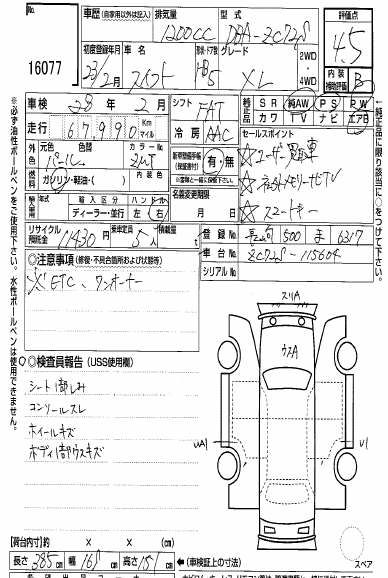 No.
16077
車歴 (自家用以外は記入)
排気量 1200CC
型式 DBA-ZC72S
評価点
4.5
初度登録年月
23/2月
車名
スイフト
形状・ドア数
5
グレード
XL
2WD
4WD
内装補助評価
B
車検 28年 2月
走行 67,990 Km マイル
シフト FAT
冷房 AAC
純正品
SR 純AW PS PW
カワ TV ナビ エアB
セールスポイント
ユーザー買取車
ネット メモリーナビTV
スマートキー
外色
元色 パール
色替
カラーNo. ZMT
燃料
ガソリン・軽油・( )
新車整備手帳(保証書付)
有・無
輸入車
年式
輸入区分
ディーラー・並行
ハンドル
左 右
名義変更期限
月 日
リサイクル預託金 11430円
乗定員数 5人
積載量
登録No. 500 ま 6317
車台No. ZC72S-115604
シリアルNo.
◎注意事項 (修復・不具合箇所および状態等)
ETC、ワンオーナー
◎検査員報告 (USS使用欄)
シート1部しみ
コンソールスレ
ホイールキズ
ボディ1部ウスキズ
スリA
ウスA
UA1
U1
スペア
【荷台内寸】約 × × (cm)
長さ 385cm 幅 169cm 高さ 151cm
(車検証上の寸法)
※必ず油性ボールペンをご使用下さい。水性ボールペンは使用できません。
純正品に限り該当に○をつけて下さい。